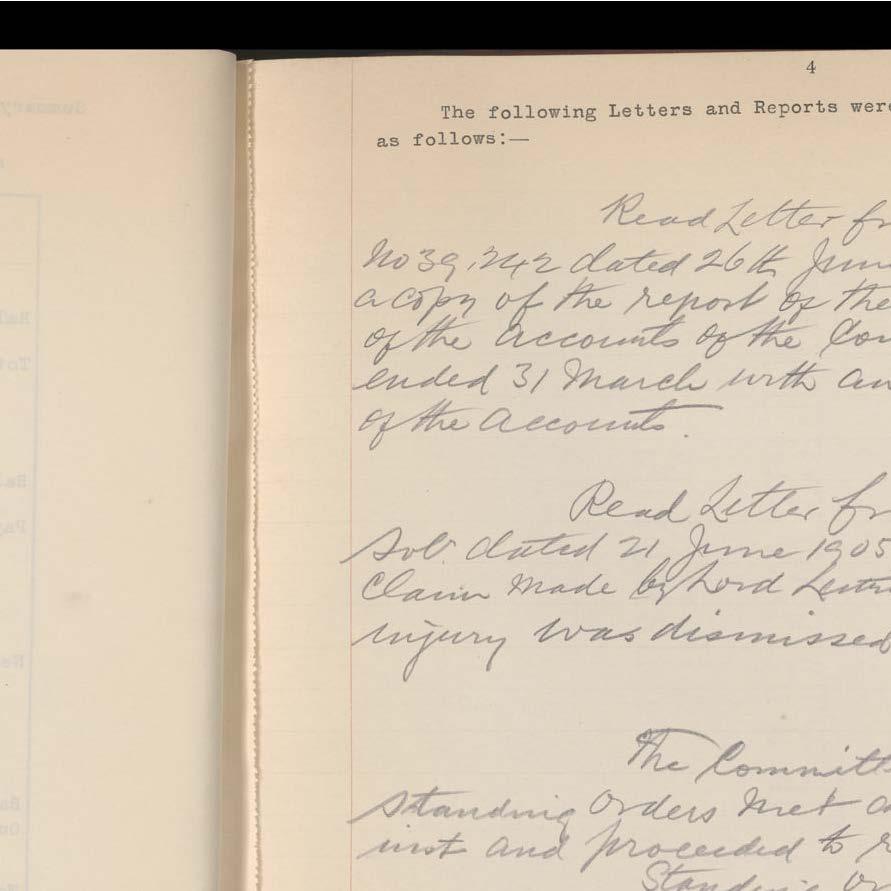 4
The following Letters and Reports were
as follows:—
Read Letter fr
No 39,242 dated 26th June
a copy of the report of the
of the Accounts of the Cou
ended 31 March with an
of the Accounts.
Read Letter fr
Solr. dated 21 June 1905
Claim made by Lord
injury was dismissed
The Committ
Standing Orders met
inst and proceeded to r
Standing Or